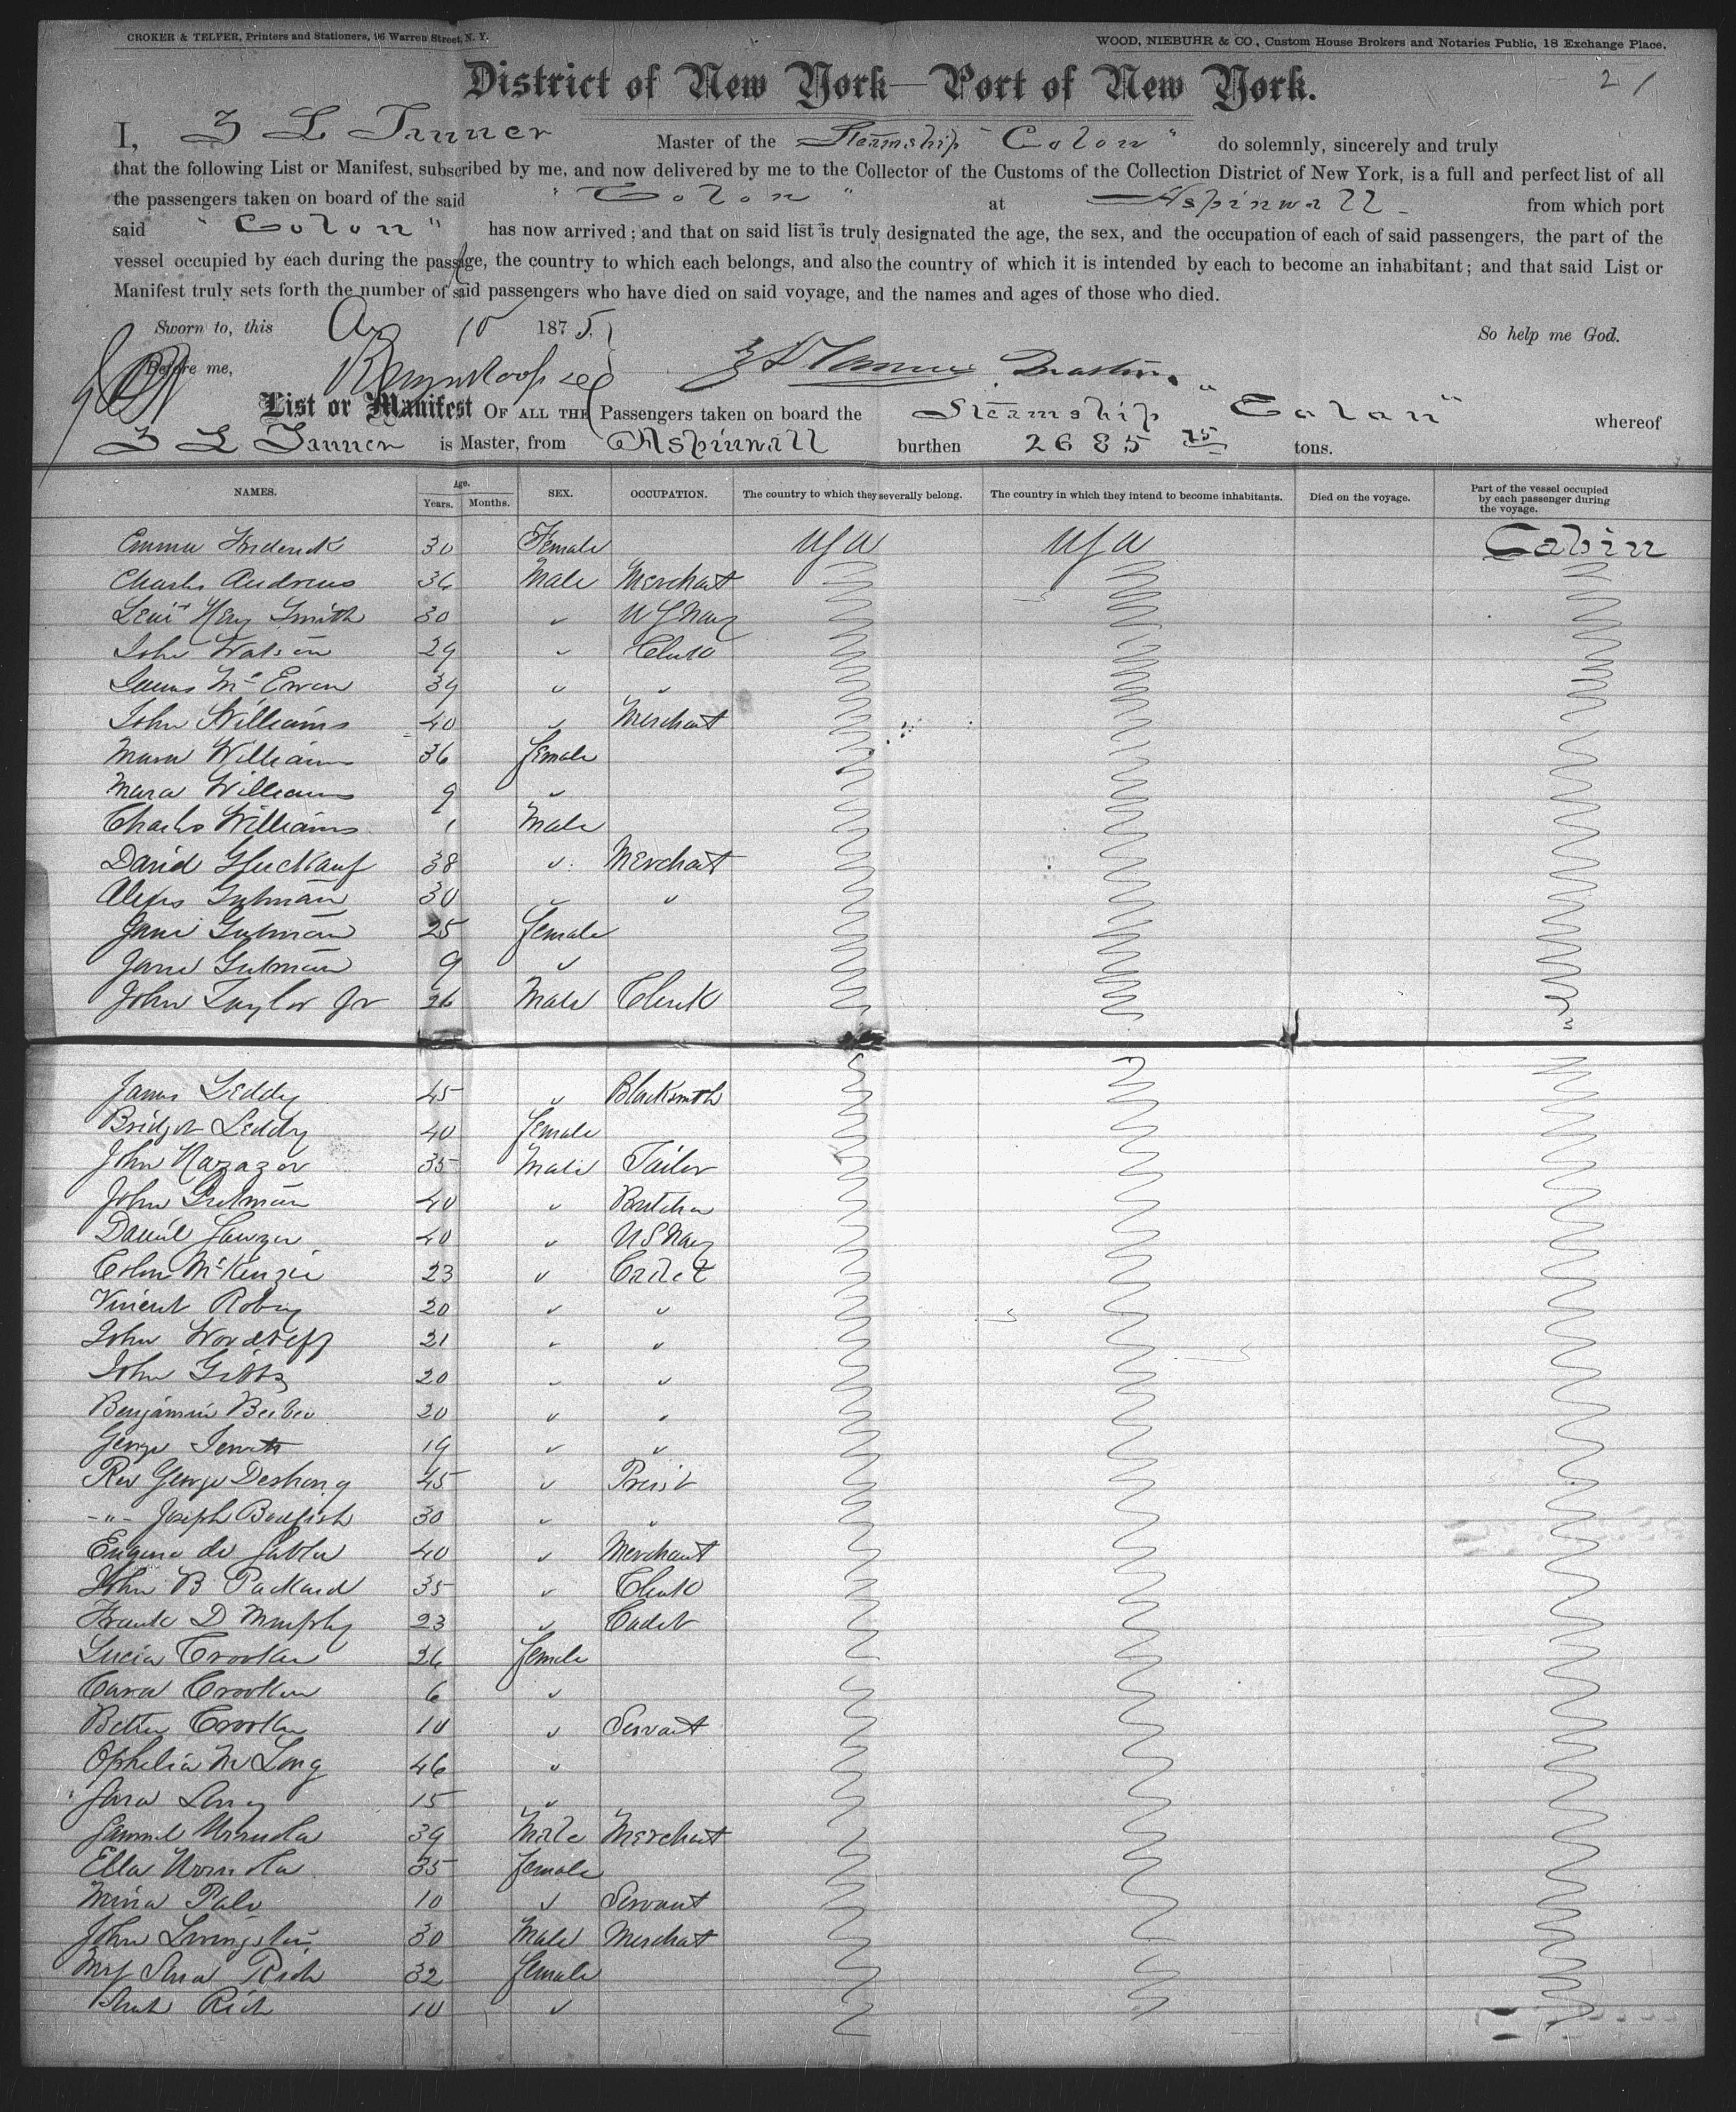 CROKER & TELFER, Printers and Stationers, 96 Warren Street, N. Y.
WOOD, NIEBUHR & CO., Custom House Brokers and Notaries Public, 18 Exchange Place.
District of New York—Port of New York.
21
I, Z L Tanner Master of the Steamship "Colon" do solemnly, sincerely and truly
that the following List or Manifest, subscribed by me, and now delivered by me to the Collector of the Customs of the Collection District of New York, is a full and perfect list of all
the passengers taken on board of the said "Colon" at Aspinwall from which port
said "Colon" has now arrived; and that on said list is truly designated the age, the sex, and the occupation of each of said passengers, the part of the
vessel occupied by each during the passage, the country to which each belongs, and also the country of which it is intended by each to become an inhabitant; and that said List or
Manifest truly sets forth the number of said passengers who have died on said voyage, and the names and ages of those who died.
Sworn to, this Ag 10 1875. So help me God.
Before me, Z L Tanner Master.
List or Manifest OF ALL THE Passengers taken on board the Steamship "Colon" whereof
Z L Tanner is Master, from Aspinwall burthen 2685 tons.
NAMES. Age. Years. Months. SEX. OCCUPATION. The country to which they severally belong. The country in which they intend to become inhabitants. Died on the voyage. Part of the vessel occupied by each passenger during the voyage.
Emma Frederick 30 Female USA USA Cabin
Charles Andrews 36 Male Merchant
Leut Heny Smith 30 " U S Navy
John Watson 29 " Clerk
James McEwen 34 " "
John Williams 40 " Merchant
Mara Williams 36 female
Mara Williams 9 "
Charles Williams 1 Male
David Gluckauf 38 " Merchant
Alexis Gutman 30 " "
Jane Gutman 25 female
Jane Gutman 9 "
John Taylor Jr 26 Male Clerk
James Leddy 45 " Blacksmith
Bridget Leddy 40 female
John Nazazor 35 Male Tailor
John Gutman 40 " Butcher
Daniel 40 " U S Navy
Colin McKenzie 23 " Cadet
Vincent Robey 20 " "
John Woodruff 21 " "
John Gibbs 20 " "
Benjamin 20 " "
George 19 " "
Rev George Deshong 45 " Preist
-"- Joseph Bodfish 30 " "
Eugene de Sabla 40 " Merchant
John B Packard 35 " Clerk
Frank D Murphy 23 " Cadet
Lucia Crooker 26 female
Cara Crooker 6 "
Crooker 10 " Servant
Ophelia M Long 46 "
Sara Long 15 "
Samuel 39 Male Merchant
Ella 35 female
10 " Servant
John Livingston 30 Male Merchat
Mrs Rich 32 female
Rich 10 "